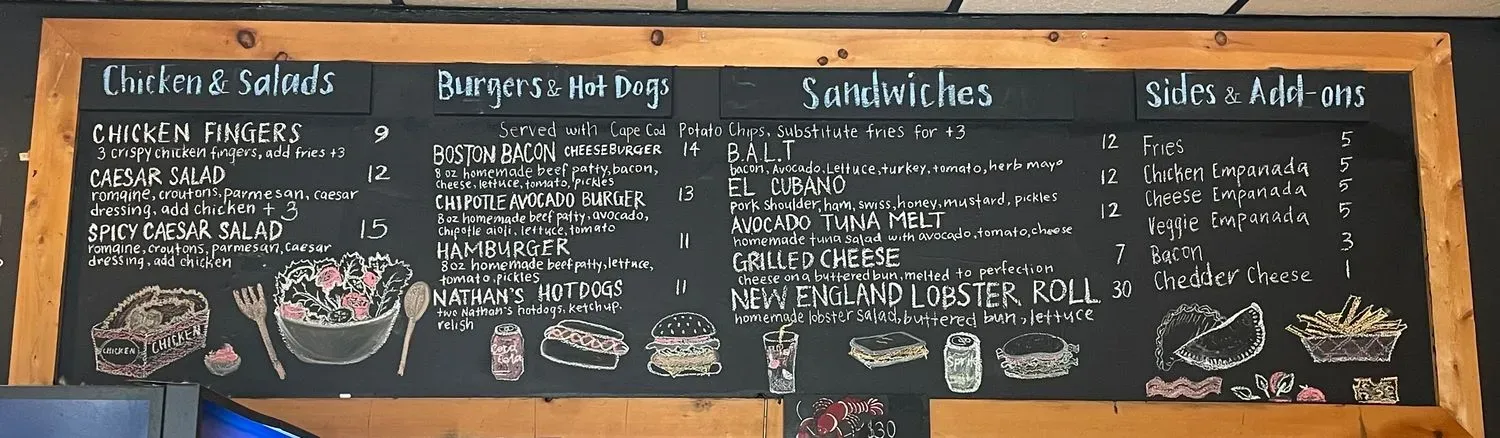 Chicken & Salads
CHICKEN FINGERS 9
3 crispy chicken fingers, add fries +3
CAESAR SALAD 12
romaine, croutons, parmesan, caesar
dressing, add chicken + 3
SPICY CAESAR SALAD 15
romaine, croutons, parmesan, caesar
dressing, add chicken
CHICKEN
CHICKEN
Burgers & Hot Dogs
Served with Cape Cod Potato Chips, Substitute fries for +3
BOSTON BACON CHEESEBURGER 14
8 oz homemade beef patty, bacon,
cheese, lettuce, tomato, pickles
CHIPOTLE AVOCADO BURGER 13
8 oz homemade beef patty, avocado,
Chipotle aioli, lettuce, tomato
HAMBURGER 11
8 oz homemade beef patty, lettuce,
tomato, pickles
NATHAN'S HOTDOGS 11
two Nathan's hotdogs, ketchup,
relish
Coca
Cola
Sandwiches
B.A.L.T 12
bacon, Avocado, Lettuce, turkey, tomato, herb mayo
EL CUBANO 12
pork shoulder, ham, swiss, honey, mustard, pickles
AVOCADO TUNA MELT 12
homemade tuna salad with avocado, tomato, cheese
GRILLED CHEESE 7
cheese on a buttered bun, melted to perfection
NEW ENGLAND LOBSTER ROLL 30
homemade lobster salad, buttered bun, lettuce
Sprite
Sides & Add-ons
Fries 5
Chicken Empanada 5
Cheese Empanada 5
Veggie Empanada 5
Bacon 3
Chedder Cheese 1
$30